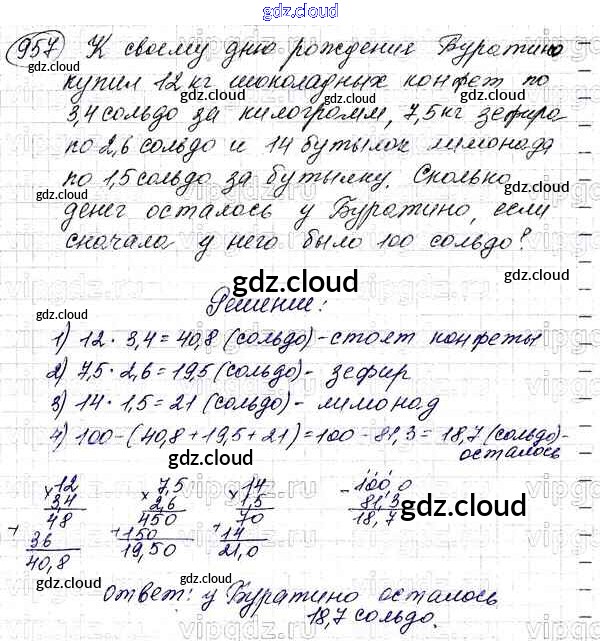 gdz.cloud
957 К своему дню рождения Буратино
gdz.cloud gdz.cloud
купил 12 кг шоколадных конфет по
3,4 сольдо за килограмм, 7,5 кг зефира
gdz.cloud gdz.cloud
по 2,6 сольдо и 14 бутылок лимонада
по 1,5 сольдо за бутылку. Сколько
gdz.cloud gdz.cloud
денег осталось у Буратино, если
сначала у него было 100 сольдо?
gdz.cloud
gdz.cloud gdz.cloud
Решение:
gdz.cloud
1) 12 · 3,4 = 40,8 (сольдо) - стоят конфеты
gdz.cloud
2) 7,5 · 2,6 = 19,5 (сольдо) - зефир
3) 14 · 1,5 = 21 (сольдо) - лимонад
gdz.cloud gdz.cloud
4) 100 - (40,8 + 19,5 + 21) = 100 - 81,3 = 18,7 (сольдо) -
осталось
× 12 × 7,5 × 14 - 100,0
3,4 2,6 1,5 81,3
gdz.cloud gdz.cloud gdz.cloud
48 450 70 18,7
+ 36 + 150 + 14
40,8 19,50 21,0
gdz.cloud gdz.cloud
Ответ: у Буратино осталось
18,7 сольдо.
gdz.cloud gdz.cloud